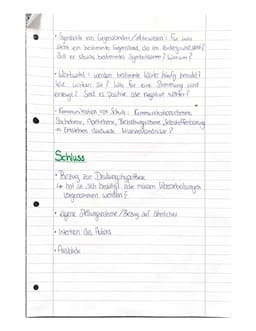 • Symbolik von Gegenständen/Lebewesen: Für was
steht ein bestimmter Gegenstand, der im Vordergrund steht?
Soll er etwas bestimmtes symbolisieren? Warum?
• Wortwahl: werden bestimmte Wörter häufig benutzt?
Wie wirken sie? Was für eine Stimmung wird
erzeugt? Sind es positive oder negative Wörter?
• Kommunikation von Schulz: Kommunikationsebene
Sachebene, Appellebene, Beziehungsebene, Selbstoffenbarung
→ Entstehen dadurch Missverständnisse?
Schluss
• Bezug zur Deutungshypothese
↳ hat sie sich bestätigt oder müssen Veränderungen
vorgenommen werden?
• eigene Stellungnahme/Bezug auf ähnliches
• Intention des Autors
• Ausblick